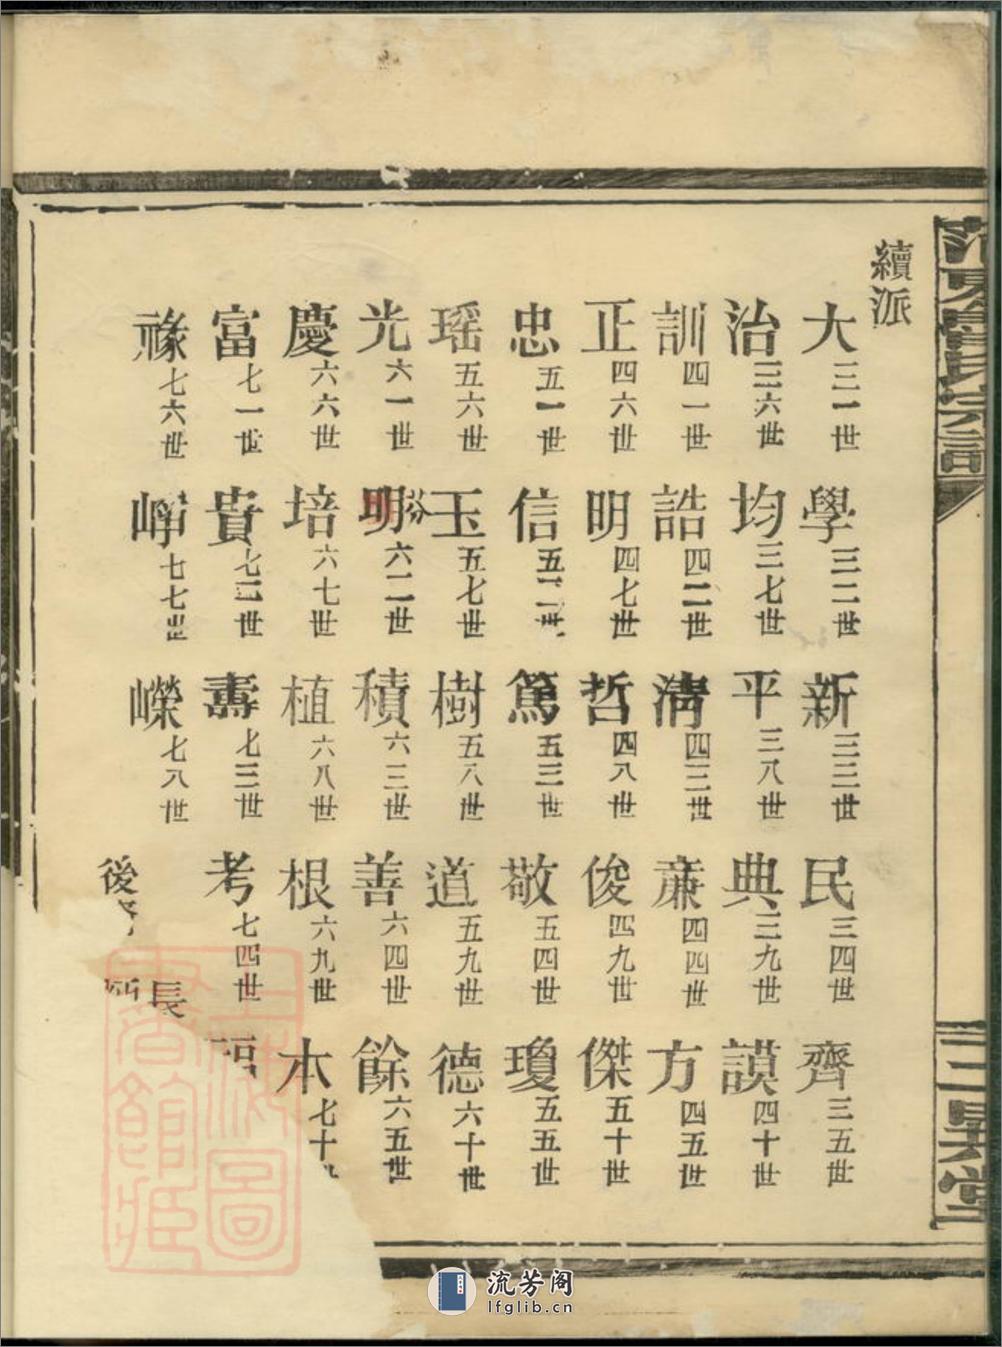 續派
大 三一世 學 三二世 新 三三世 民 三四世 齊 三五世
治 三六世 均 三七世 平 三八世 典 三九世 謨 四十世
訓 四一世 誥 四二世 清 四三世 亷 四四世 方 四五世
正 四六世 明 四七世 哲 四八世 俊 四九世 傑 五十世
忠 五一世 信 五二世 篤 五三世 敬 五四世 瓊 五五世
瑶 五六世 玉 五七世 樹 五八世 道 五九世 德 六十世
光 六一世 明 芬 六二世 積 六三世 善 六四世 餘 六五世
慶 六六世 培 六七世 植 六八世 根 六九世 本 七十世
富 七一世 貴 七二世 壽 七三世 考 七四世
祿 七六世 崢 七七世 嶸 七八世
後
長
上海圖
書館藏
流芳阁
lfglib.cn